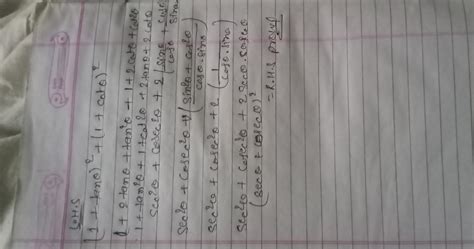 L.H.S
(1 + tanθ)² + (1 + cotθ)²
1 + 2 tanθ + tan²θ + 1 + 2 cotθ + cot²θ
1 + tan²θ + 1 + cot²θ + 2 tanθ + 2 cotθ
sec²θ + cosec²θ + 2 (sinθ/cosθ + cosθ/sinθ)
sec²θ + cosec²θ + 2 (sin²θ + cos²θ/cosθ . sinθ)
sec²θ + cosec²θ + 2 (1/cosθ . sinθ)
sec²θ + cosec²θ + 2 secθ . cosecθ
(secθ + cosecθ)²
= R.H.S proved